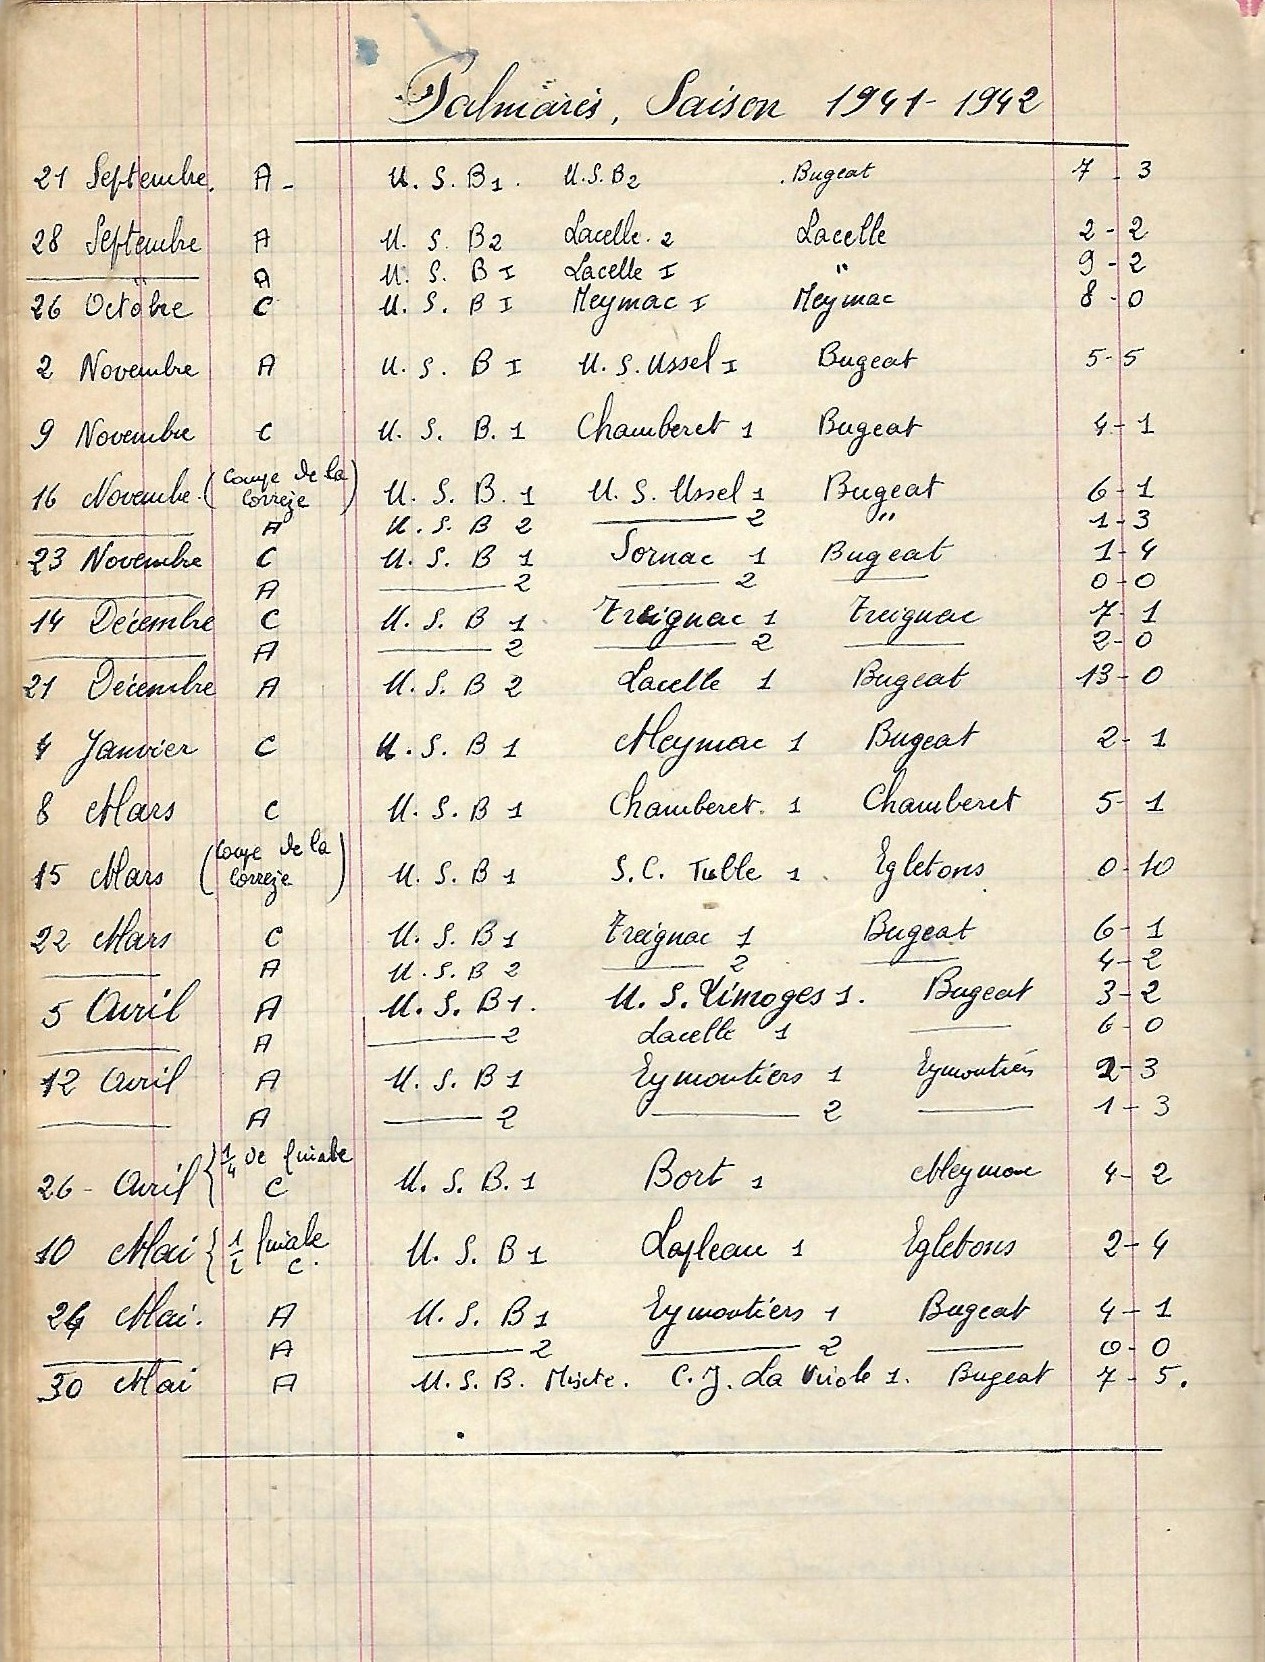 Palmarès, Saison 1941-1942
21 Septembre. A - U.S.B1. U.S.B2 Bugeat 7-3
28 Septembre A U.S.B2 Lacelle.2 Lacelle 2-2
A U.S.B I Lacelle I " 9-2
26 Octobre C U.S.B I Meymac I Meymac 8-0
2 Novembre A U.S.B I U.S.Ussel I Bugeat 5-5
9 Novembre C U.S.B.1 Chamberet 1 Bugeat 4-1
(Coupe de la
16 Novembre. Correze) U.S.B.1 U.S.Ussel 1 Bugeat 6-1
A U.S.B 2 —— 2 " 1-3
23 Novembre C U.S.B 1 Sornac 1 Bugeat 1-4
—— A —— 2 —— 2 —— 0-0
14 Décembre C U.S.B 1 Treignac 1 Treignac 7-1
—— A —— 2 —— 2 —— 2-0
21 Décembre A U.S.B 2 Lacelle 1 Bugeat 13-0
4 Janvier C U.S.B 1 Meymac 1 Bugeat 2-1
8 Mars C U.S.B 1 Chamberet. 1 Chamberet 5-1
(Coupe de la
15 Mars Correze) U.S.B 1 S.C. Tulle 1 Egletons 0-10
22 Mars C U.S.B 1 Treignac 1 Bugeat 6-1
—— A U.S.B 2 —— 2 —— 4-2
5 Avril A U.S.B1. U.S.Limoges 1. Bugeat 3-2
—— A —— 2 Lacelle 1 —— 6-0
12 Avril A U.S.B 1 Eymoutiers 1 Eymoutiers 2-3
—— A —— 2 —— 2 —— 1-3
{1/4 de finale
26 - Avril C U.S.B.1 Bort 1 Meymac 4-2
10 Mai {1/2 finale C. U.S.B 1 Lapleau 1 Egletons 2-4
24 Mai. A U.S.B 1 Eymoutiers 1 Bugeat 4-1
—— A —— 2 —— 2 —— 0-0
30 Mai A U.S.B. Mixte. C.J. La Viole 1. Bugeat 7-5.